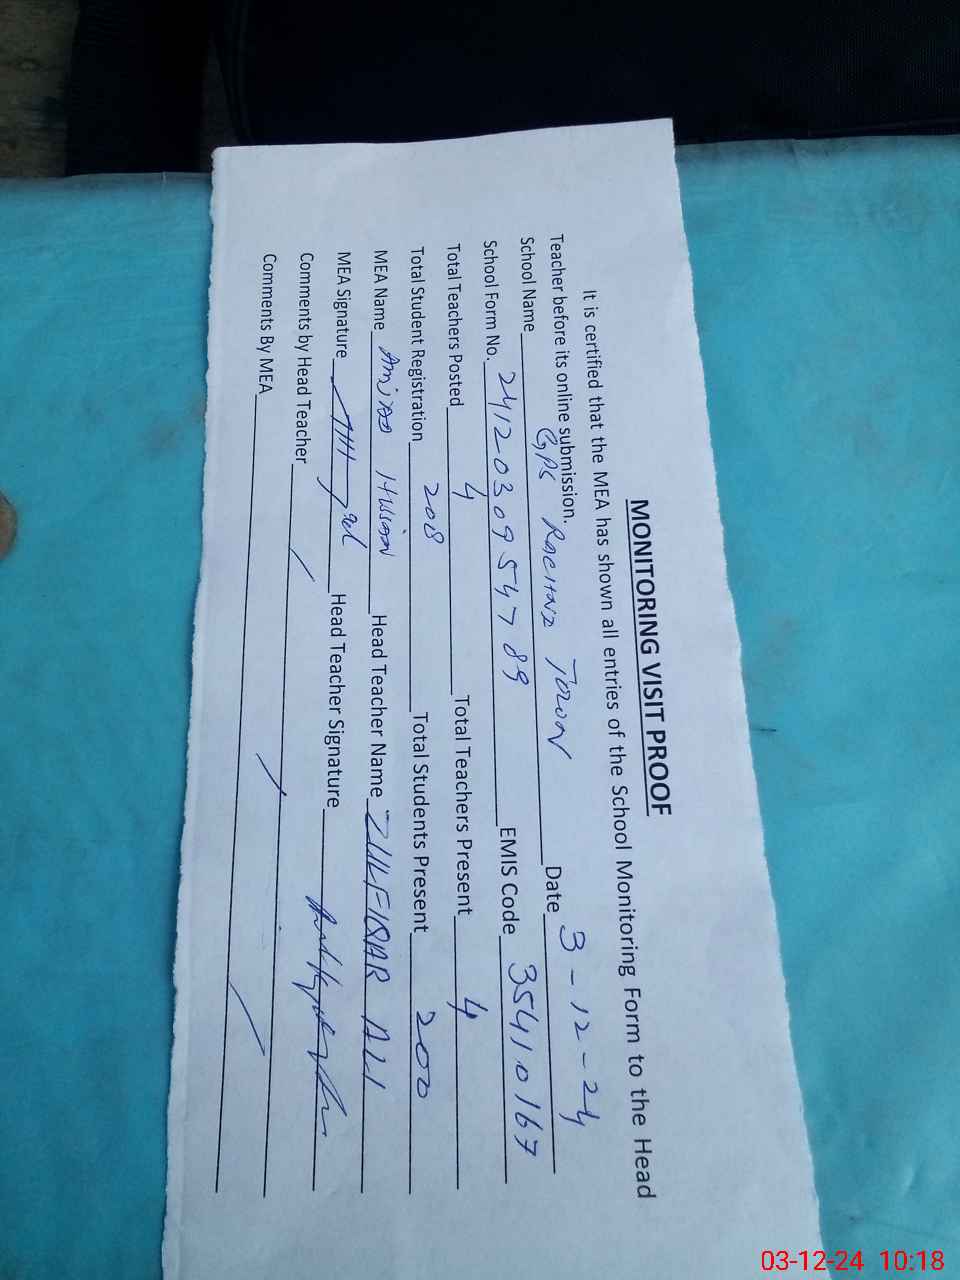 MONITORING VISIT PROOF
It is certified that the MEA has shown all entries of the School Monitoring Form to the Head
Teacher before its online submission.
School Name GPS Town Date 3-12-24
School Form No. 2412030954789 EMIS Code 35410167
Total Teachers Posted 4 Total Teachers Present 4
Total Student Registration 208 Total Students Present 200
MEA Name Amjad Hussain Head Teacher Name ZULFIQAR ALI
MEA Signature Head Teacher Signature
Comments by Head Teacher
Comments By MEA
03-12-24 10:18